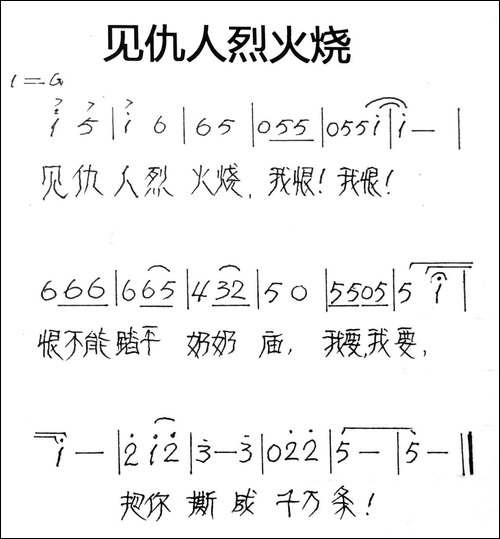 见仇人烈火烧
1=G
i 5 | i 6 | 6 5 | 0 5 5 | 0 5 5 i | i — |
见仇人烈 火烧, 我恨! 我恨!
6 6 6 | 6 6 5 | 4 3 2 | 5 0 | 5 5 0 5 | 5 i |
恨不能踏平 奶奶 庙, 我要,我要,
i — | 2 i 2 | 3 — 3 | 0 2 2 | 5 — | 5 — ||
把你 撕成 千万条!